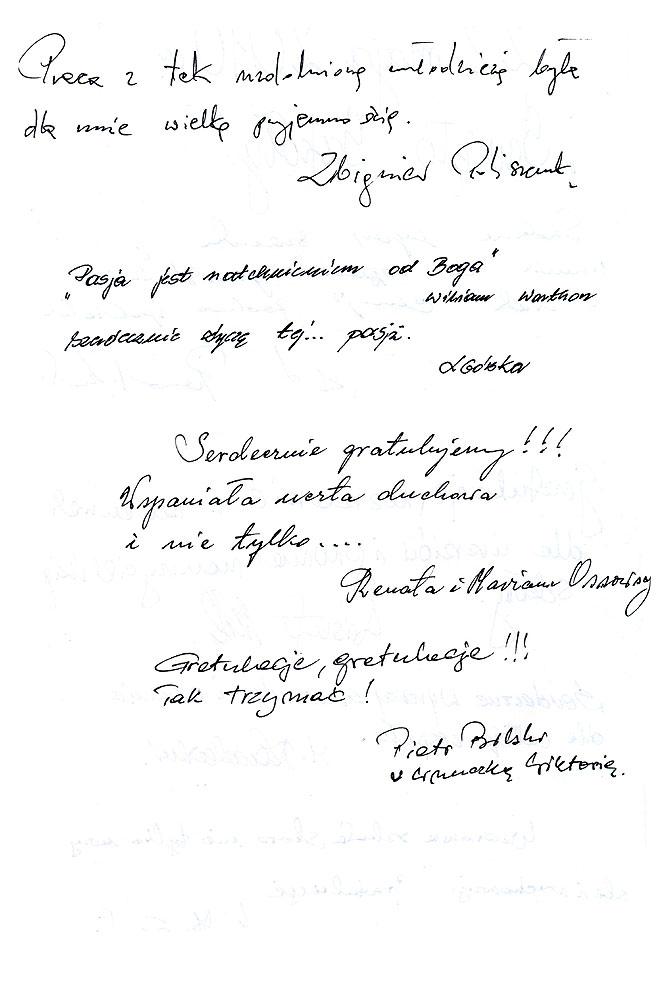 Praca z tak uzdolnioną młodzieżą była
dla mnie wielką przyjemnością.
Zbigniew
"Pasja jest natchnieniem od Boga"
William Warthon
serdecznie życzę tej... pasji.
L Górska
Serdecznie gratulujemy!!!
Wspaniała uczta duchowa
i nie tylko....
Renata i Marian Ossowscy
Gratulacje, gratulacje !!!
Tak trzymać !
Piotr Bilski
z Wiktorią.